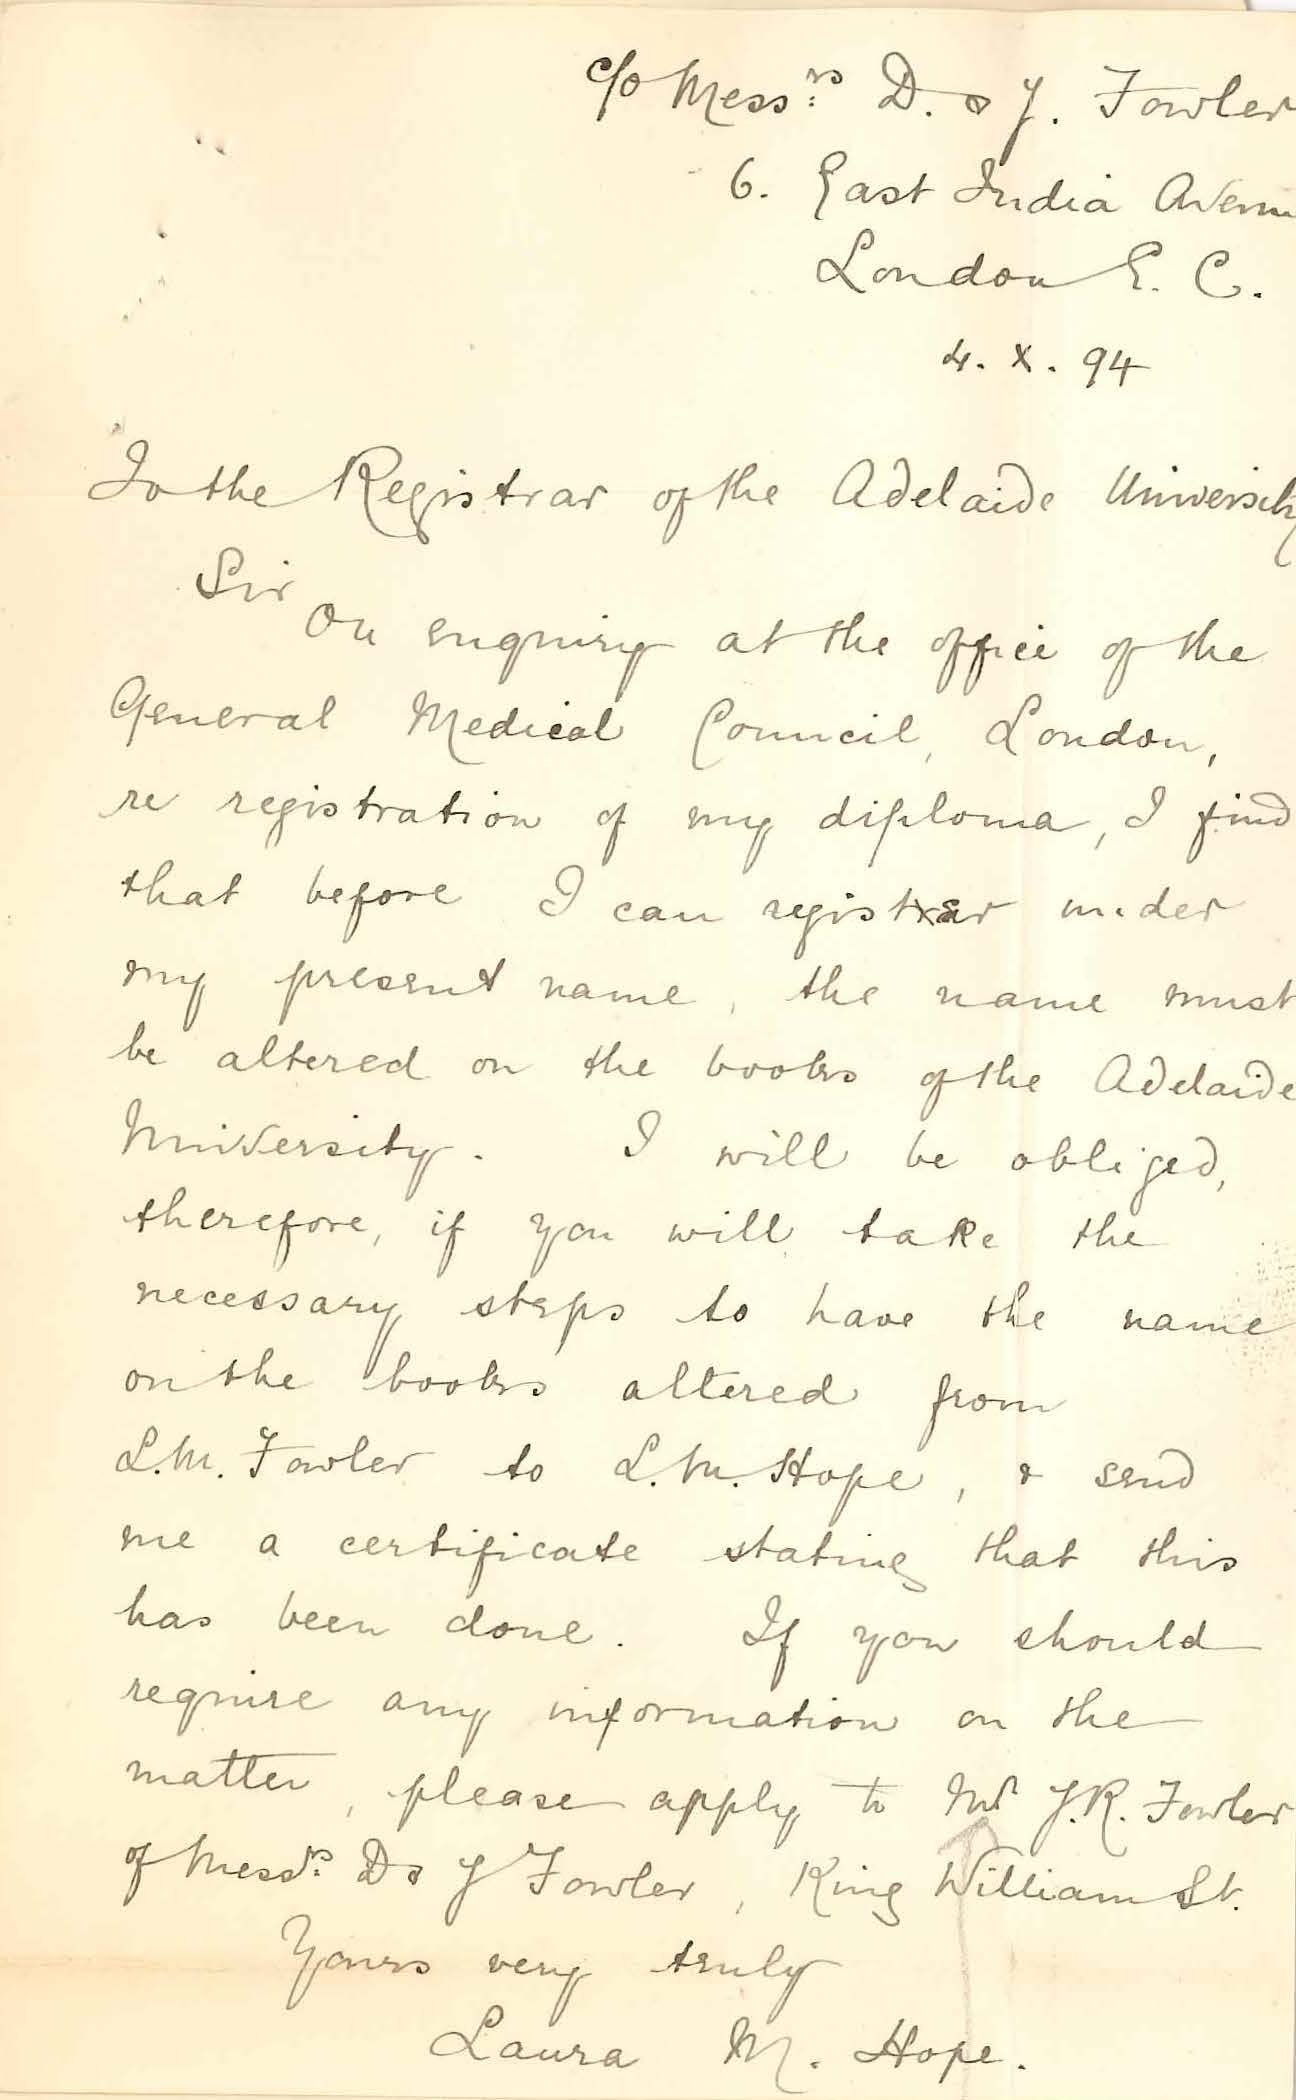 c/o Messrs. D. & J. Fowler
6. East India Avenu
London E. C.
4. X. 94
To the Registrar of the Adelaide University
Sir
On enquiry at the office of the
General Medical Council, London,
re registration of my diploma, I find
that before I can register under
my present name, the name must
be altered on the books of the Adelaide
University. I will be obliged,
therefore, if you will take the
necessary steps to have the name
on the books altered from
L.M. Fowler to L.M. Hope, & send
me a certificate stating that this
has been done. If you should
require any information on the
matter, please apply to Mr J.R. Fowler
of Messrs. D & J Fowler, King William St.
Yours very truly
Laura M. Hope.